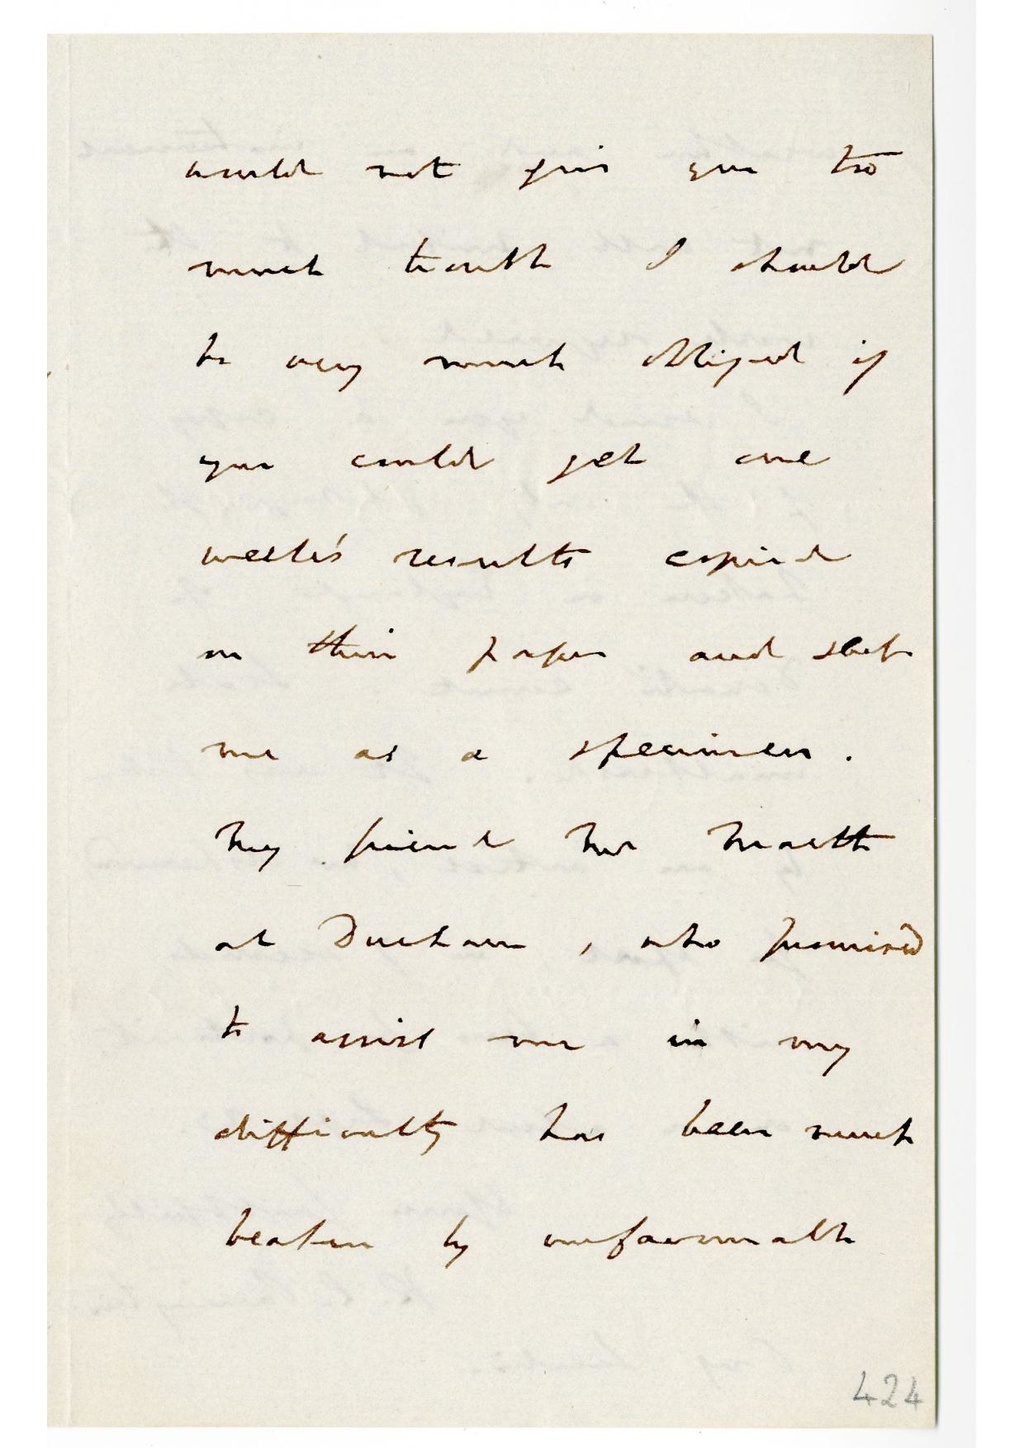 would not give you too
much trouble I should
be very much obliged if
you could get one
week's results copied
on thin paper and sent
me as a specimen.
My friend
at Durham, who promised
to assist me in my
difficulty has been much
beaten by unfavourable
424